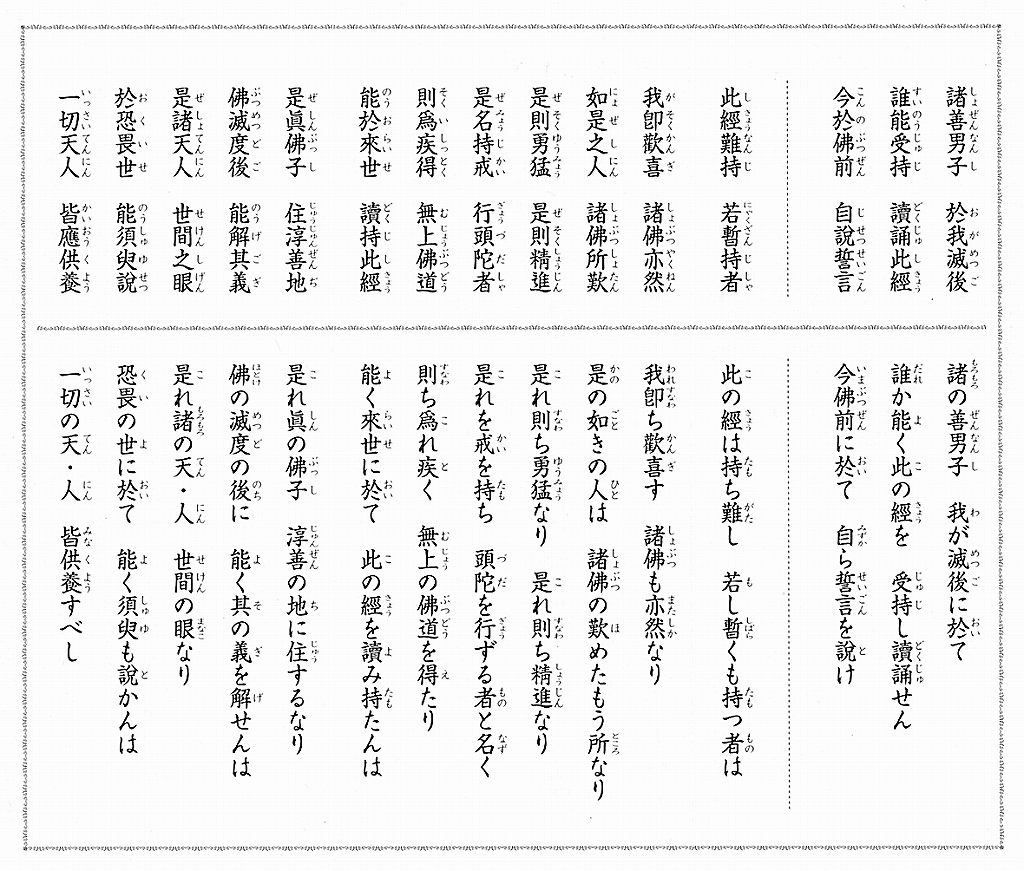 諸善男子　於我滅後
誰能受持　讀誦此經
今於佛前　自說誓言
此經難持　若暫持者
我卽歡喜　諸佛亦然
如是之人　諸佛所歎
是則勇猛　是則精進
是名持戒　行頭陀者
則爲疾得　無上佛道
能於來世　讀持此經
是眞佛子　住淳善地
佛滅度後　能解其義
是諸天人　世間之眼
於恐畏世　能須臾說
一切天人　皆應供養
諸の善男子　我が滅後に於て
誰か能く此の經を　受持し讀誦せん
今佛前に於て　自ら誓言を說け
此の經は持ち難し　若し暫くも持つ者は
我卽ち歡喜す　諸佛も亦然なり
是の如きの人は　諸佛の歎めたもう所なり
是れ則ち勇猛なり　是れ則ち精進なり
是れを戒を持ち　頭陀を行ずる者と名く
則ち爲れ疾く　無上の佛道を得たり
能く來世に於て　此の經を讀み持たんは
是れ眞の佛子　淳善の地に住するなり
佛の滅度の後に　能く其の義を解せんは
是れ諸の天・人　世間の眼なり
恐畏の世に於て　能く須臾も說かんは
一切の天・人　皆供養すべし